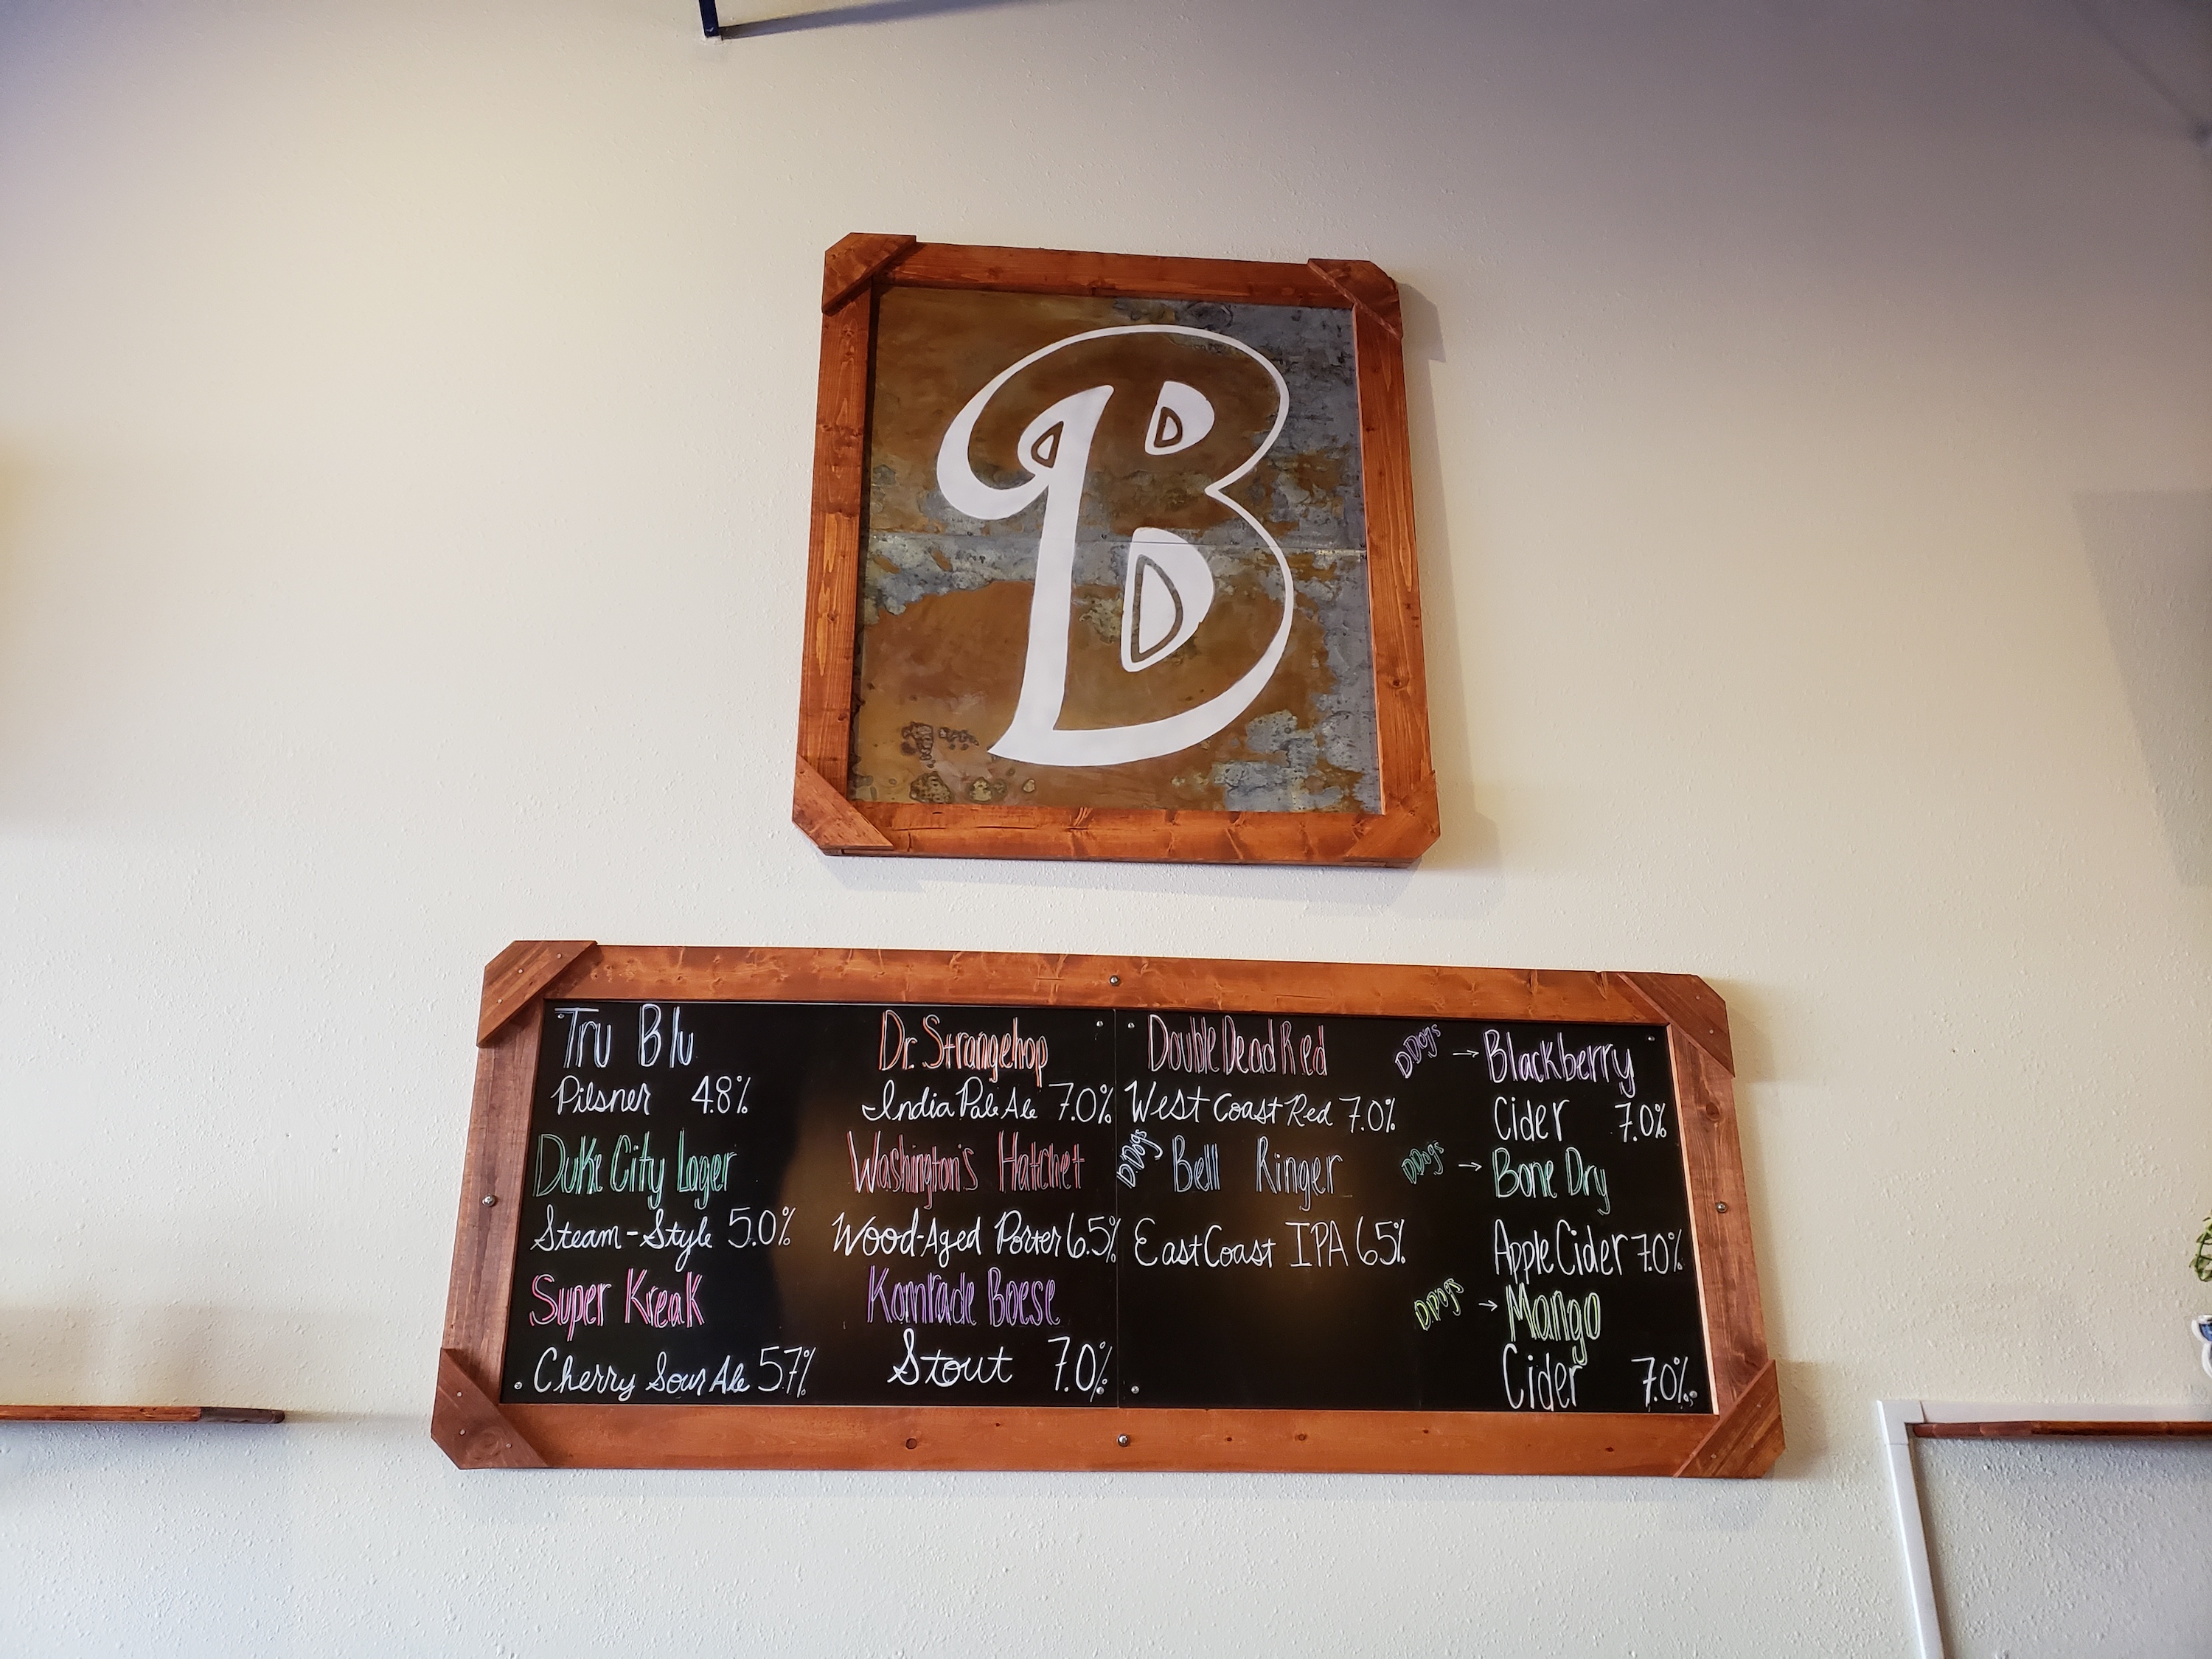 B
Tru Blu
Pilsner 4.8%
Duke City Lager
Steam-Style 5.0%
Super Kreak
Cherry Sour Ale 5.7%
Dr. Strangehop
India Pale Ale 7.0%
Washington's Hatchet
Wood-Aged Porter 6.5%
Komrade Boese
Stout 7.0%
Double Dead Red
West Coast Red 7.0%
DDogs Bell Ringer
East Coast IPA 6.5%
DDogs → Blackberry
Cider 7.0%
DDogs → Bone Dry
Apple Cider 7.0%
DDogs → Mango
Cider 7.0%